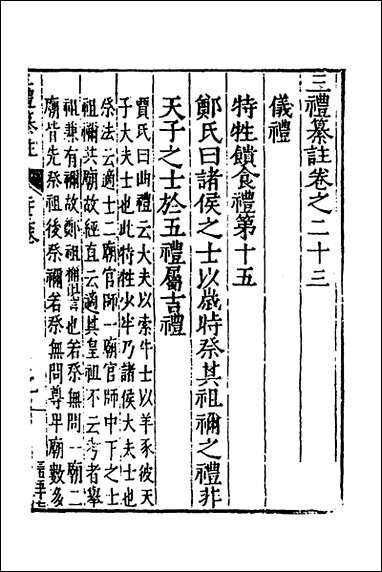 三禮纂註卷之二十三
儀禮
特牲饋食禮第十五
鄭氏曰諸侯之士以歲時祭其祖禰之禮非
天子之士於五禮屬吉禮
賈氏曰曲禮云大夫以索牛士以羊豕彼天
子大夫士也此特牲少牢乃諸侯大夫士也
祭法云適士二廟官師一廟官師中下之士
祖禰共廟故經直云適其皇祖不云考者舉
祖兼有禰故鄭祖禰並言也若祭無問一廟二
廟皆先祭祖後祭禰若祭無問尊卑廟數多